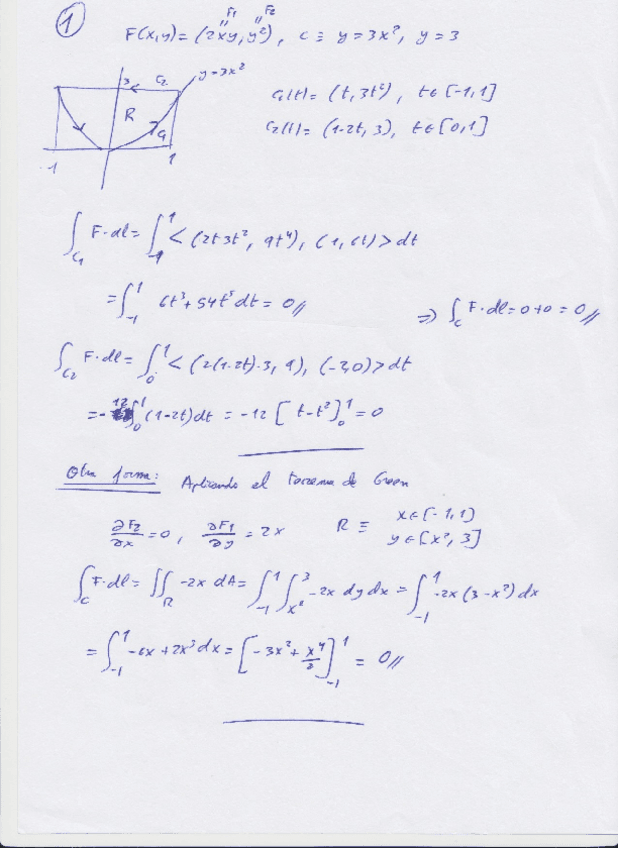 1
F1 F2
F(x,y) = (2xy, y²), C ≡ y=3x², y=3
3 C2 y=3x²
R
C1
-1 1
C1(t) = (t, 3t²), t∈[-1,1]
C2(t) = (1-2t, 3), t∈[0,1]
∫_{C1} F·dl = ∫_{-1}^{1} <(2t3t², 9t⁴), (1, 6t)> dt
= ∫_{-1}^{1} 6t³ + 54t⁵ dt = 0//
⇒ ∫_C F·dl = 0+0 = 0//
∫_{C2} F·dl = ∫_0^1 <(2(1-2t)·3, 9), (-2,0)> dt
= -12 ∫_0^1 (1-2t) dt = -12 [t-t²]_0^1 = 0
Otra forma: Aplicando el teorema de Green
∂F2/∂x = 0, ∂F1/∂y = 2x R ≡ x∈[-1,1)
y∈[x², 3]
∫_C F·dl = ∬_R -2x dA = ∫_{-1}^{1} ∫_{x²}^{3} -2x dy dx = ∫_{-1}^{1} -2x(3-x²) dx
= ∫_{-1}^{1} -6x + 2x³ dx = [-3x² + x⁴/2]_{-1}^{1} = 0//